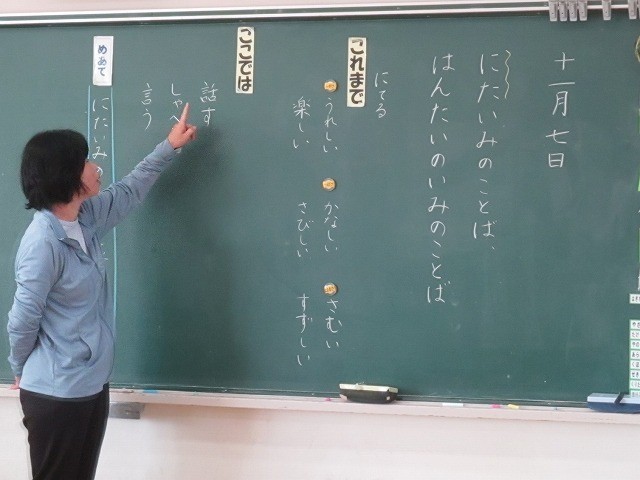 十一月七日
にたいみのことば、
はんたいのいみのことば
これまで
にてる
うれしい
楽しい
かなしい
さびしい
さむい
すずしい
ここでは
話す
しゃべ
言う
めあて
にたいみの